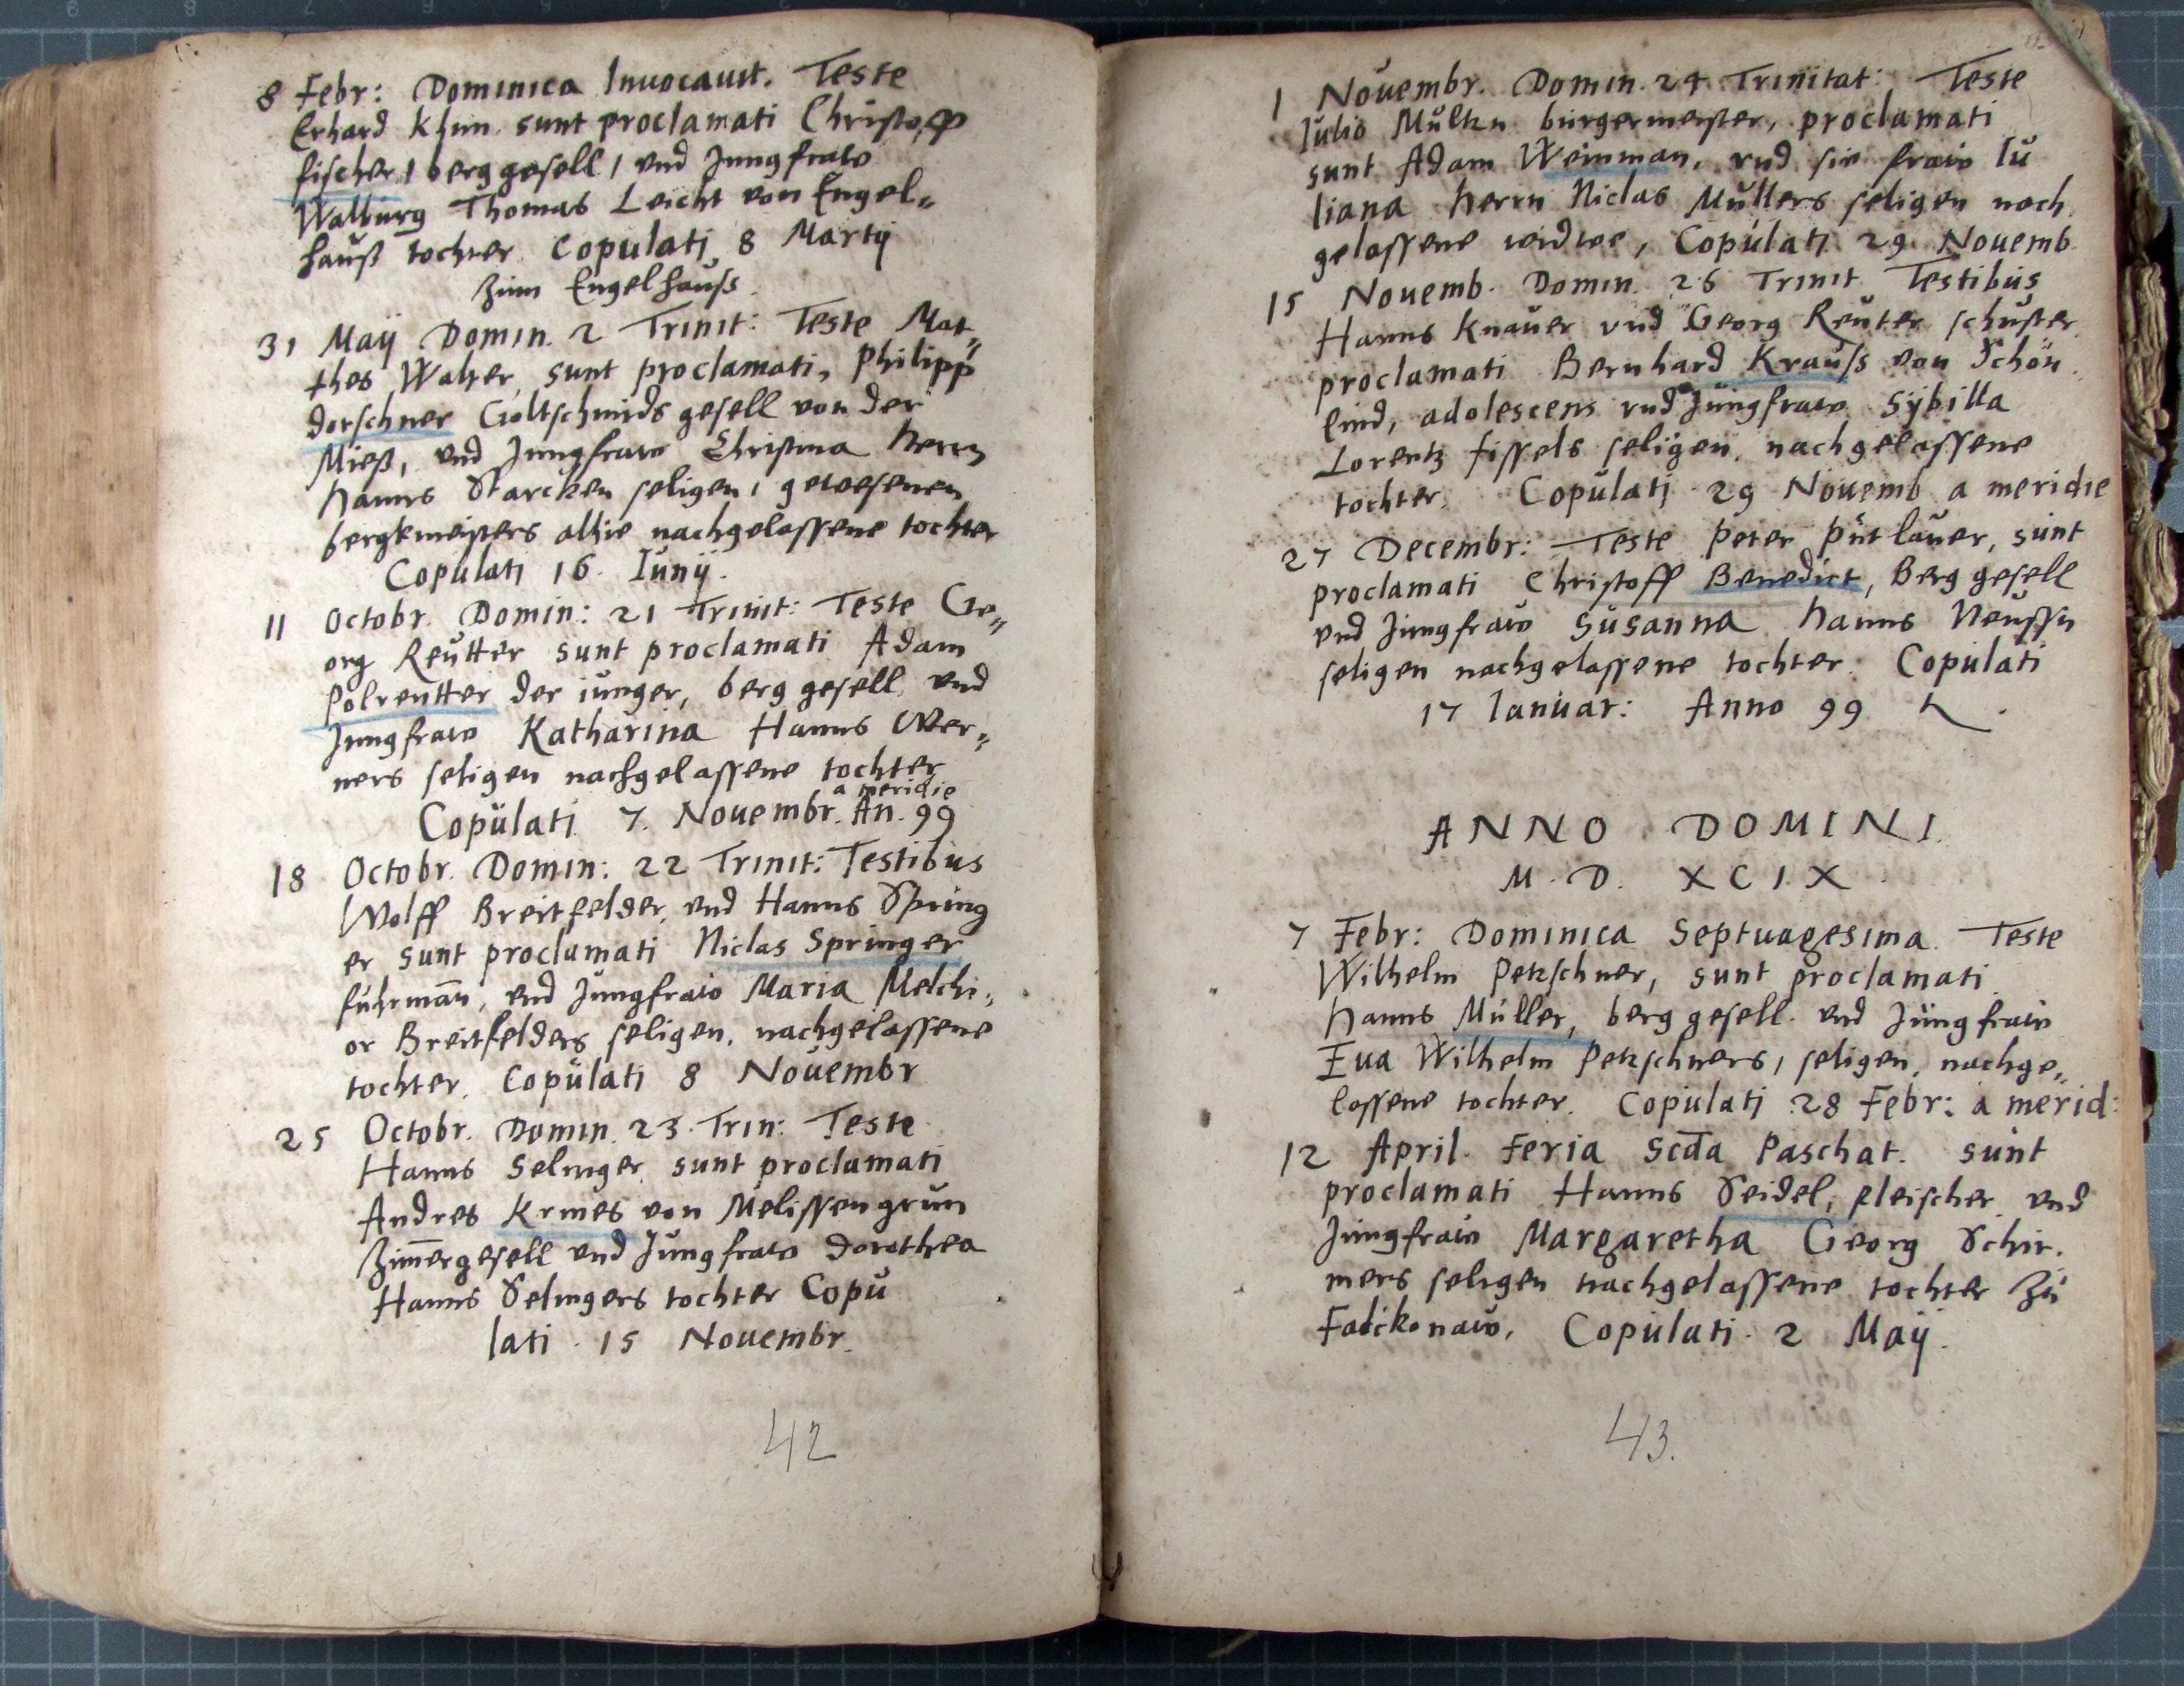 8 Febr: Dominica Inuocauit. Teste
Erhard Khun sunt proclamati Christoff
fischer, berggesell, vnd Jungfraw
Walburg Thomas Leicht von Engel„
hauß tochter Copulati 8 Martij
zum Engelhauss.
31 Maij Domin. 2 Trinit: Teste Mat„
thes Walzer sunt proclamati, Philipp
dorschner Goltschmids gesell von der
Mieß, vnd Jungfraw Christina Herrn
Hanns Starcken seligen, gewesenen
bergkmeisters alhie nachgelassene tochter
Copulati 16. Iunij.
11 Octobr. Domin: 21 Trinit: Teste Ge„
org Reutter sunt proclamati Adam
Polreutter der iunger, berggesell, vnd
Jungfraw Katharina Hanns Wer„
ners seligen nachgelassene tochter
a meridie
Copulati 7. Nouembr. An. 99
18 Octobr. Domin: 22 Trinit: Testibus
Wolff Breitfelder, vnd Hanns Spring
er sunt proclamati Niclas Springer
fuhrman̄, vnd Jungfraw Maria Melchi„
or Breitfelders seligen, nachgelassene
tochter, Copulati 8 Nouembr
25 Octobr. Domin. 23. Trin: Teste
Hanns Selinger sunt proclamati
Andres Krines von Melissengrun
Zim̄ergesell vnd Jungfraw dorothea
Hanns Selingers tochter Copu
lati 15 Nouembr.
42
1 Nouembr. Domin. 24 Trinitat: Teste
Iulio Multzn burgermeister, proclamati
sunt Adam Weinman, vnd sie fraw Iu
liana Herrn Niclas Mullers seligen nach
gelassene widwe, Copulati 29 Nouemb
15 Nouemb. Domin. 26 Trinit Testibus
Hanns Knauer vnd Georg Reuter schuster
proclamati Bernhard Krauss von Schön
lind, adolescens vnd Jungfraw Sybilla
Lorentz fissels seligen, nachgelassene
tochter. Copulati 29 Nouemb a meridie
27 Decembr: Teste Peter Putlauer, sunt
proclamati Christoff Benedict, Berggesell
vnd Jungfraw Susanna Hanns Neussn
seligen nachgelassene tochter. Copulati
17 Ianuar: Anno 99
ANNO DOMINI.
M. D. XCIX.
7 Febr: Dominica Septuagesima. Teste
Wilhelm Petzschner, sunt proclamati
Hanns Müller, berggesell. vnd Jungfraw
Eua Wilhelm Petzschners, seligen, nachge„
lassene tochter. Copulati 28 Febr: a merid:
12 April. Feria Scda Paschat. sunt
proclamati Hanns Seidel, fleischer vnd
Jungfraw Margaretha Georg Schir.
mers seligen nachgelassene tochter zu
Falckenaw, Copulati 2 Maij.
43.